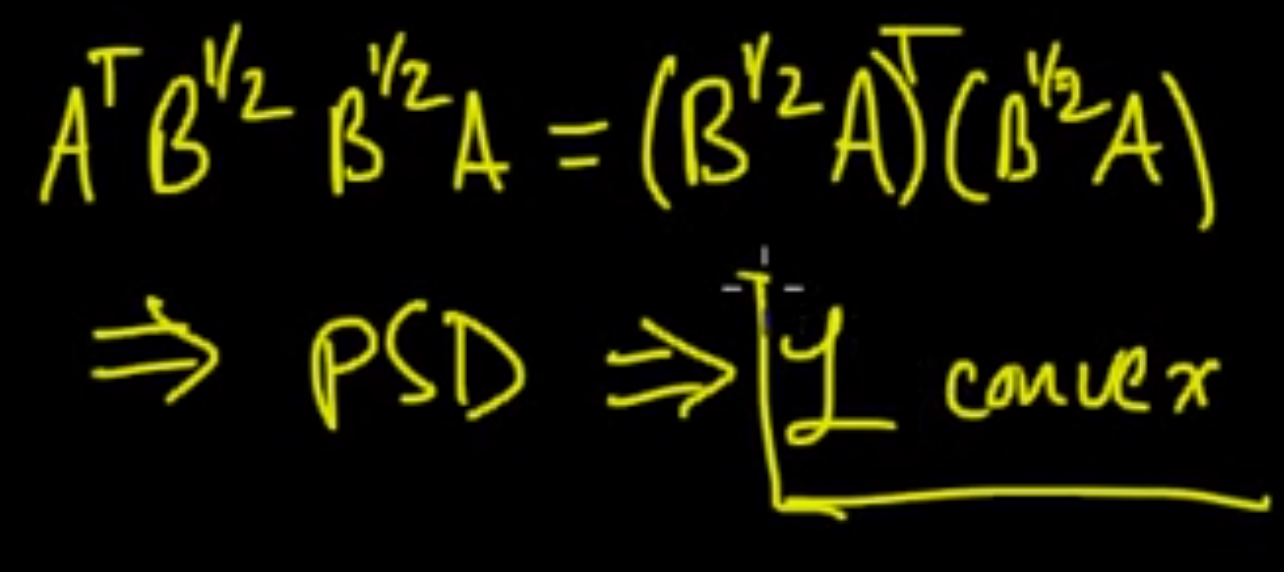 AᵀB^{1/2} B^{1/2}A = (B^{1/2}A)ᵀ(B^{1/2}A)
⇒ PSD ⇒ ℒ convex